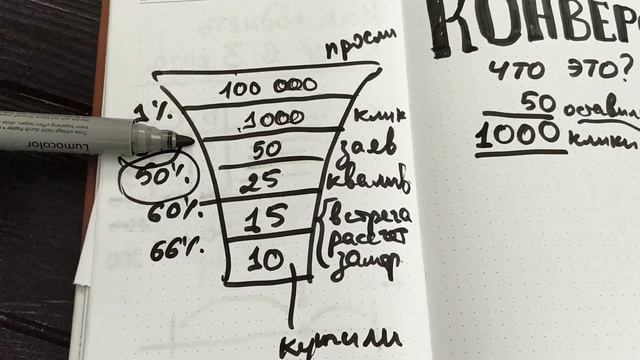 просм
100 000
1%
1000
клик
50
заяв
50%
25
квалиф
60%
15
встреча
рассчет
66%
10
замер
купили
КОНВЕР
ЧТО ЭТО?
50 оставил
1000 клики
Lumocolor